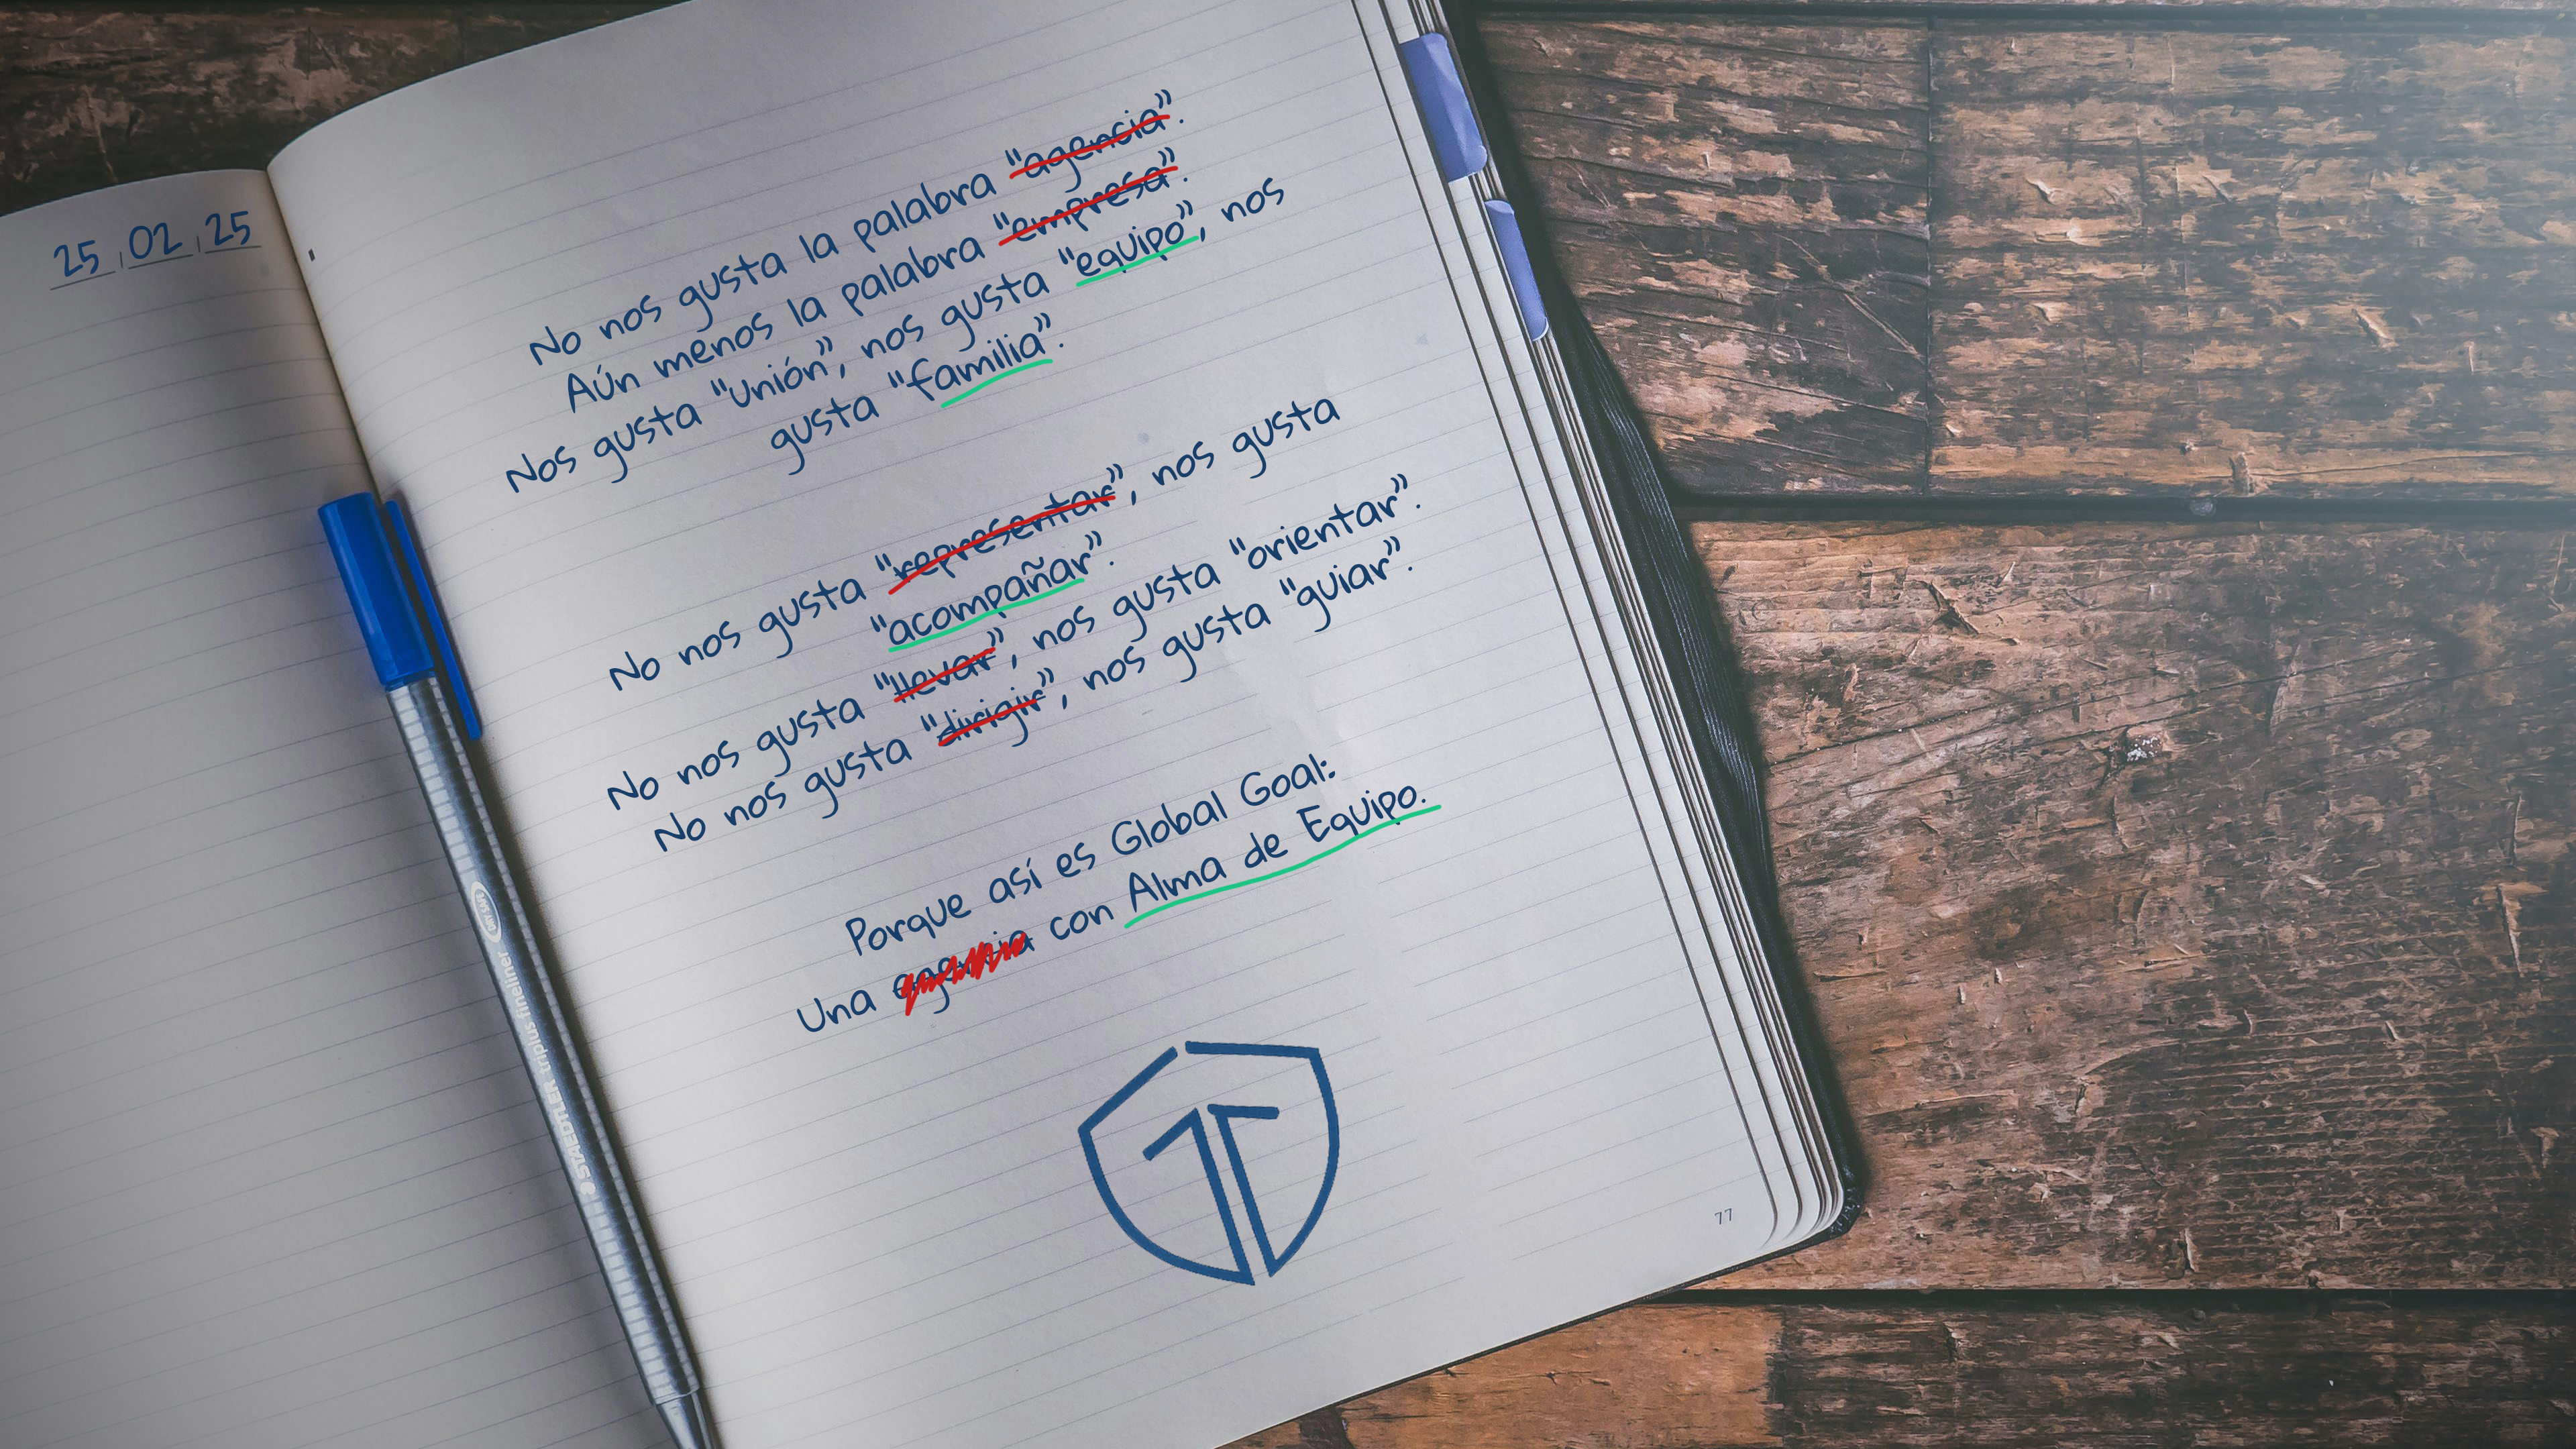 25 02 25
No nos gusta la palabra "agencia".
Aún menos la palabra "empresa".
Nos gusta "unión", nos gusta "equipo", nos
gusta "familia".
No nos gusta "representar", nos gusta
"acompañar".
No nos gusta "llevar", nos gusta "orientar".
No nos gusta "dirigir", nos gusta "guiar".
Porque así es Global Goal:
Una agencia con Alma de Equipo.
STAEDTLER triplus fineliner
DRY SAFE
77